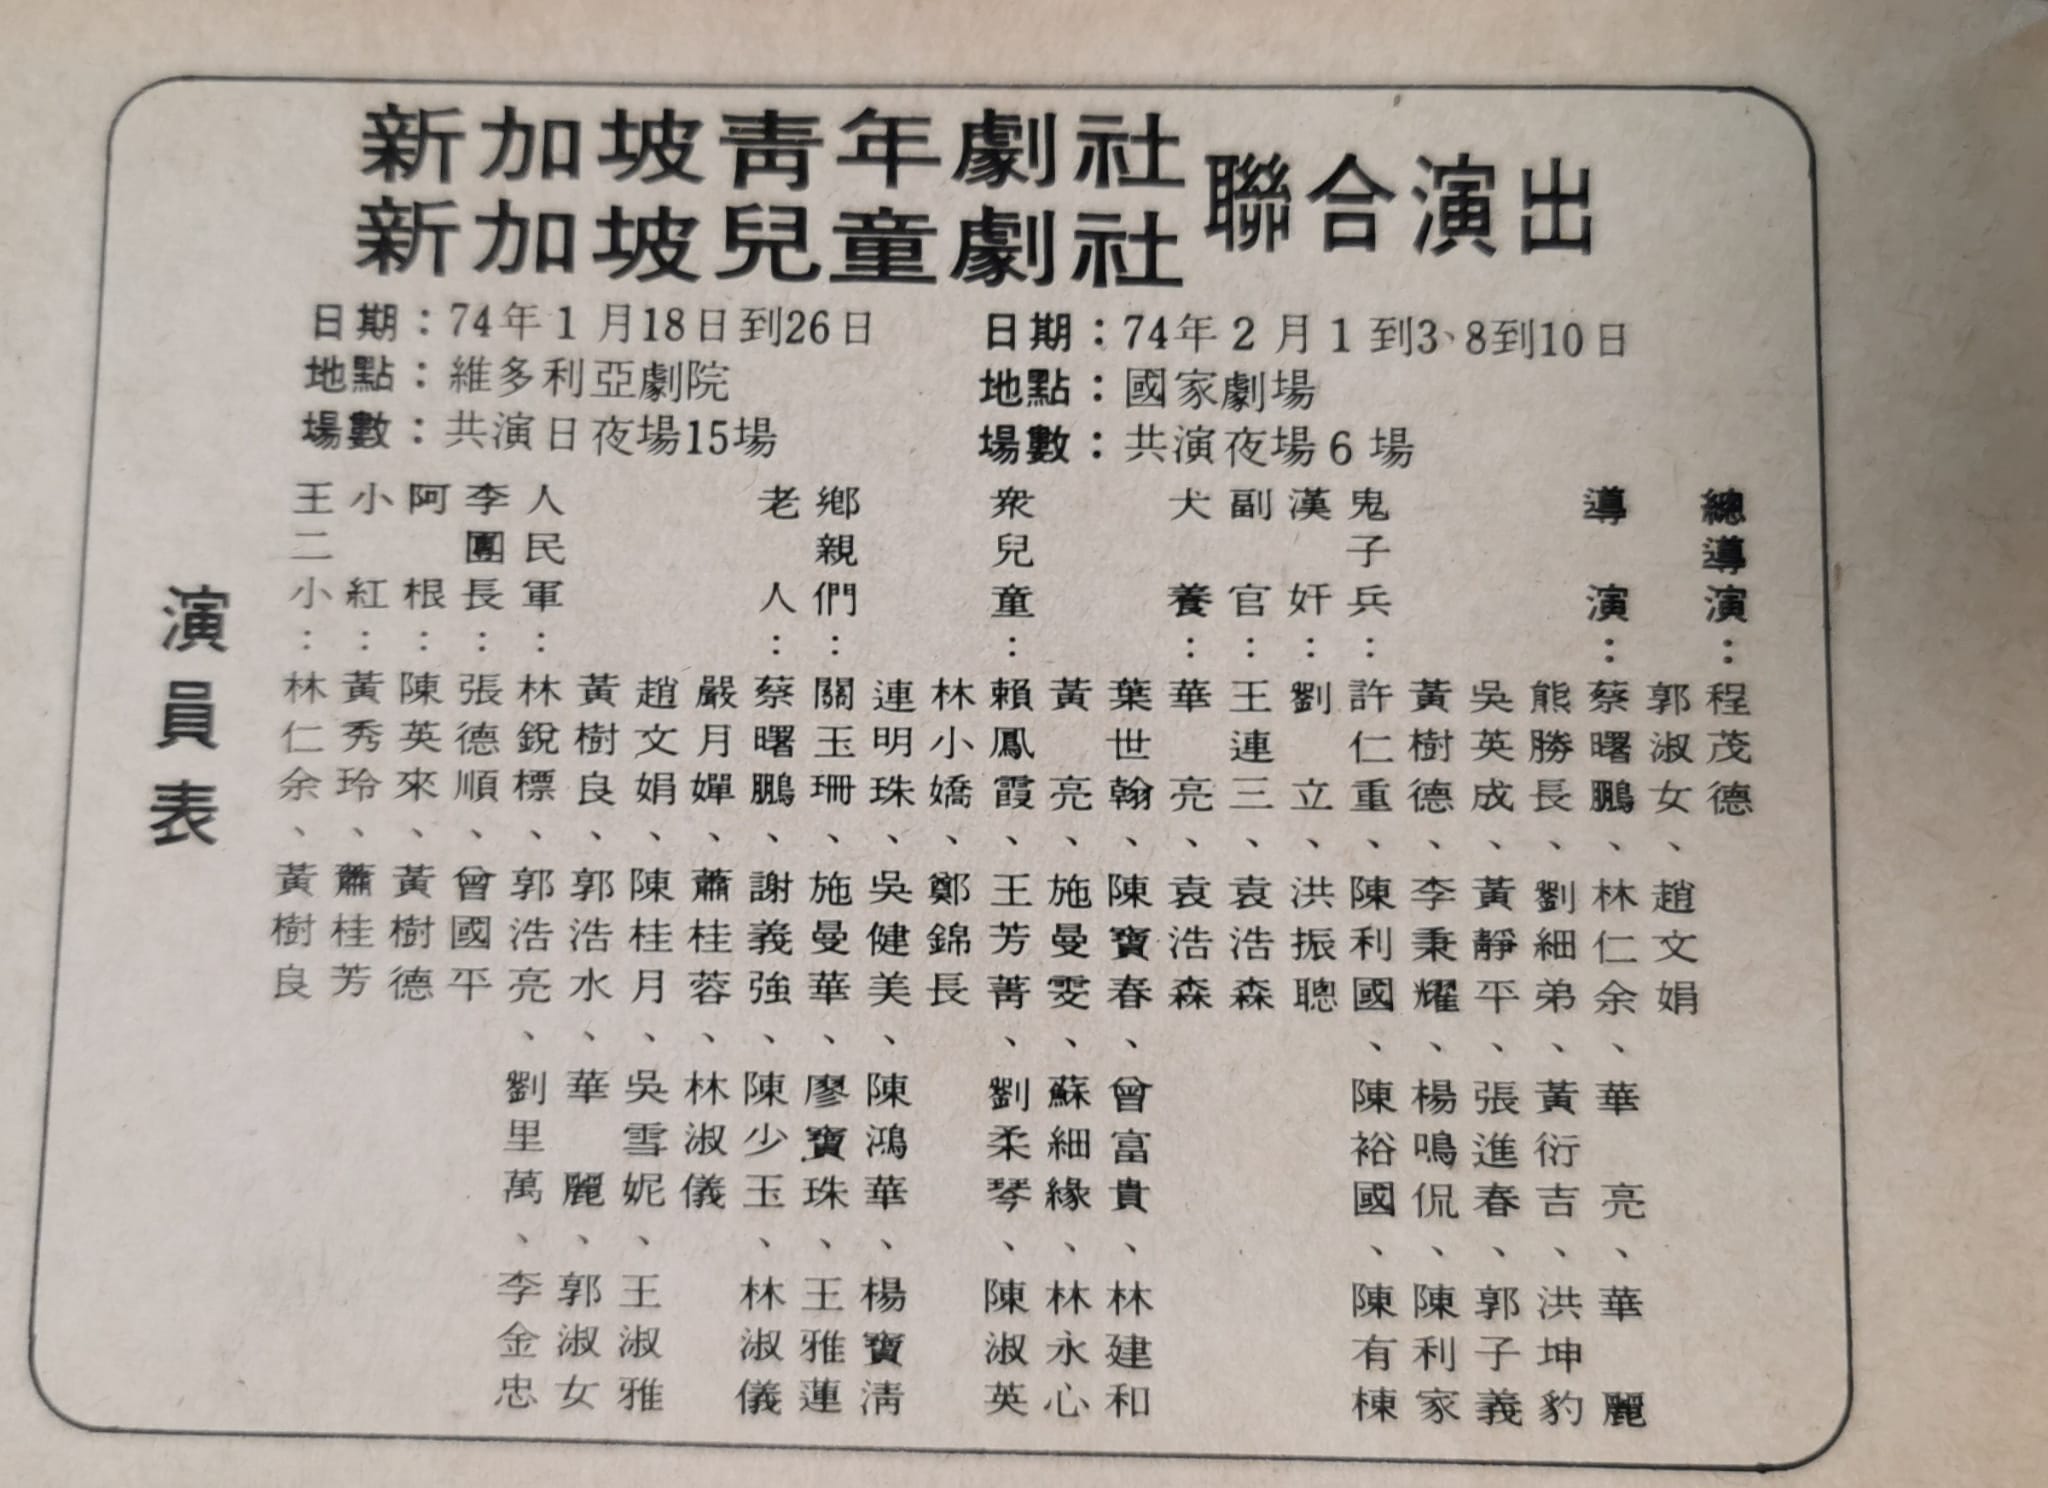 新加坡青年劇社
新加坡兒童劇社
聯合演出
日期：74年1月18日到26日
地點：維多利亞劇院
場數：共演日夜場15場
日期：74年2月1到3、8到10日
地點：國家劇場
場數：共演夜場6場
演員表
王二小：林仁余、黃樹良
小紅：黃秀玲、蕭桂芳
阿根：陳英來、黃樹德
李團長：張德順、曾國平
人民軍：林銳標、郭浩亮、劉里萬、李金忠
黃樹良、郭浩水、華麗、郭淑女
趙文娟、陳桂月、吳雪妮、王淑雅
嚴月嬋、蕭桂蓉、林淑儀
老人：蔡曙鵬、謝義強、陳少玉、林淑儀
鄉親們：關玉珊、施曼華、廖寶珠、王雅蓮
連明珠、吳健美、陳鴻華、楊寶清
林小嬌、鄭錦長
衆兒童：賴鳳霞、王芳菁、劉柔琴、陳淑英
黃亮、施曼雯、蘇細緣、林永心
葉世翰、陳寶春、曾富貴、林建和
犬養：華亮、袁浩森
副官：王連三、袁浩森
漢奸：劉立、洪振聰
鬼子兵：許仁重、陳利國、陳裕國、陳有棟
黃樹德、李秉耀、楊鳴侃、陳利家
吳英成、黃靜平、張進春、郭子義
熊勝長、劉細弟、黃衍吉、洪坤豹
導演：蔡曙鵬、林仁余、華亮、華麗
郭淑女、趙文娟
總導演：程茂德